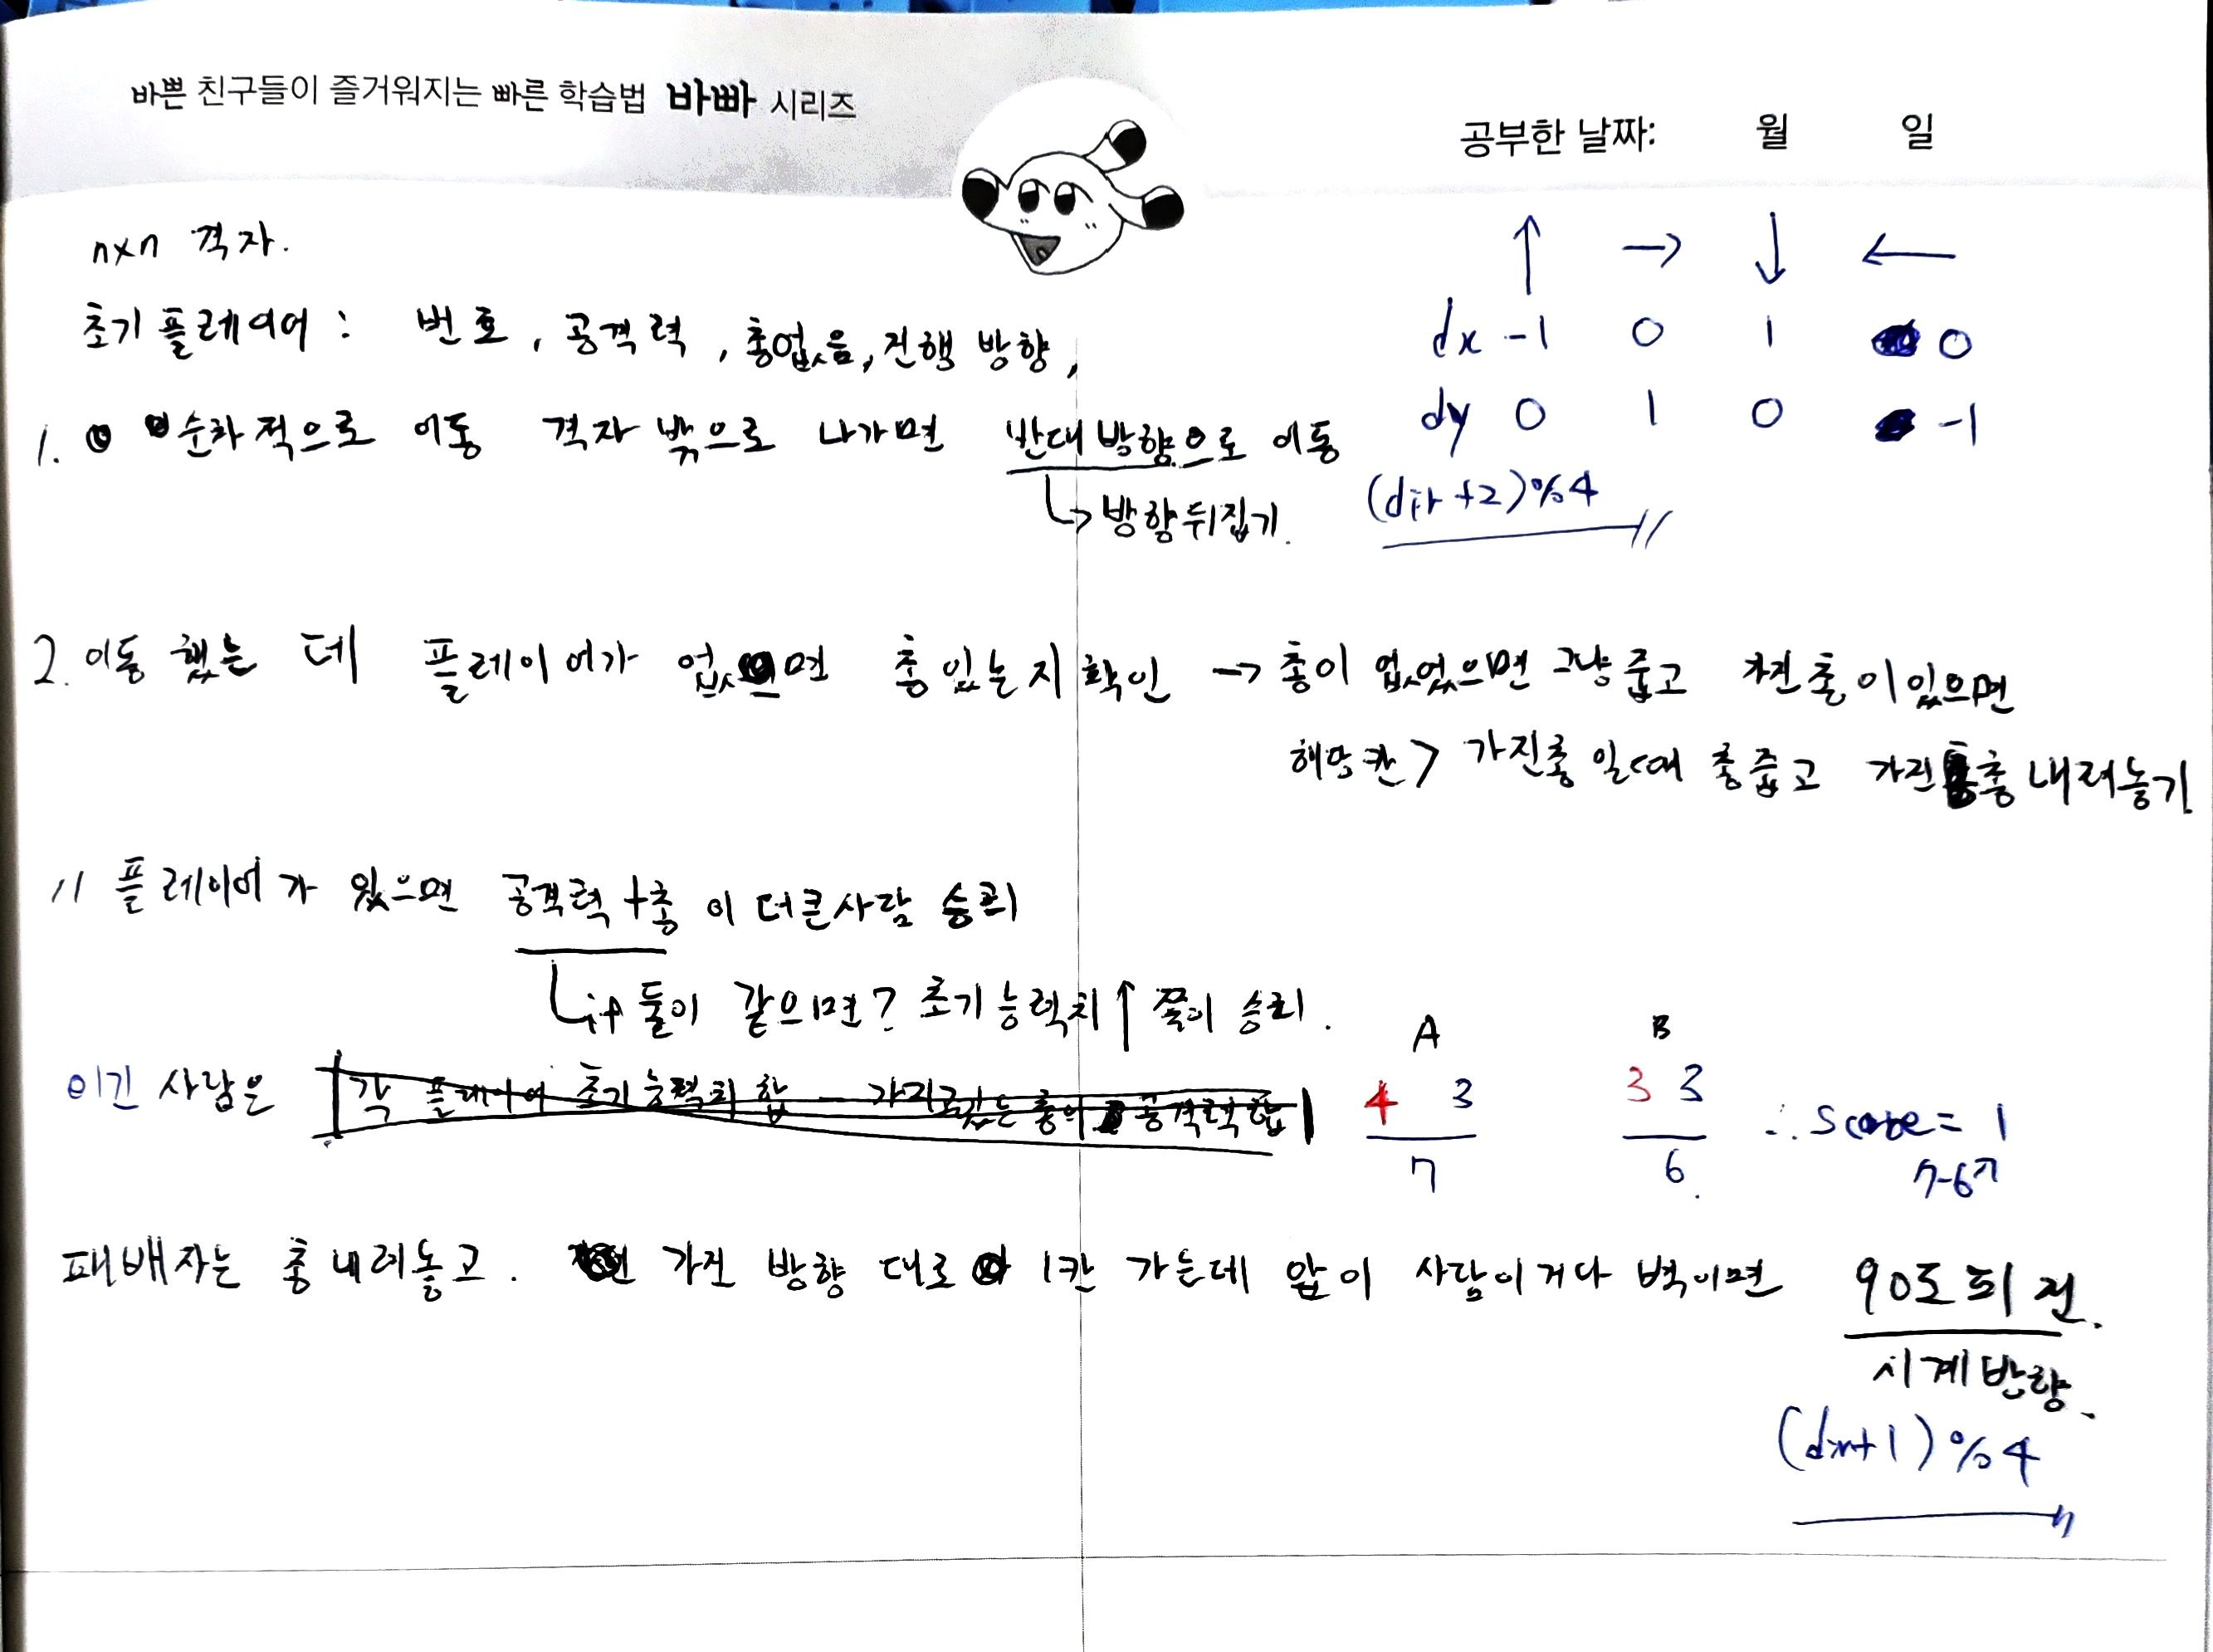 바쁜 친구들이 즐거워지는 빠른 학습법 바빠 시리즈
공부한 날짜: 월 일
n×n 격자.
초기 플레이어 : 번호, 공격력, 총없음, 진행 방향,
↑ → ↓ ←
dx -1 0 1 0
dy 0 1 0 -1
(dir+2)%4
1. 순차적으로 이동 격자 밖으로 나가면 반대방향으로 이동
↳ 방향뒤집기.
2. 이동 했는 데 플레이어가 없으면 총 있는지 확인 → 총이 없었으면 그냥 줍고 가진 총이 있으면
해당 칸 > 가진총 일때 총 줍고 가진 총 내려놓기
// 플레이어가 있으면 공격력 + 총 이 더 큰 사람 승리
↳ if 둘이 같으면? 초기능력치↑ 쪽이 승리.
이긴 사람은 각 플레이어 초기 능력치 합 - 가지고있는 총의 공격력 합
A B
4 3 3 3
7 6
∴ score = 1
7-6
패배자는 총 내려놓고. 가진 방향 대로 1칸 가는데 앞이 사람이거나 벽이면 90도 회전.
시계방향.
(dir+1)%4